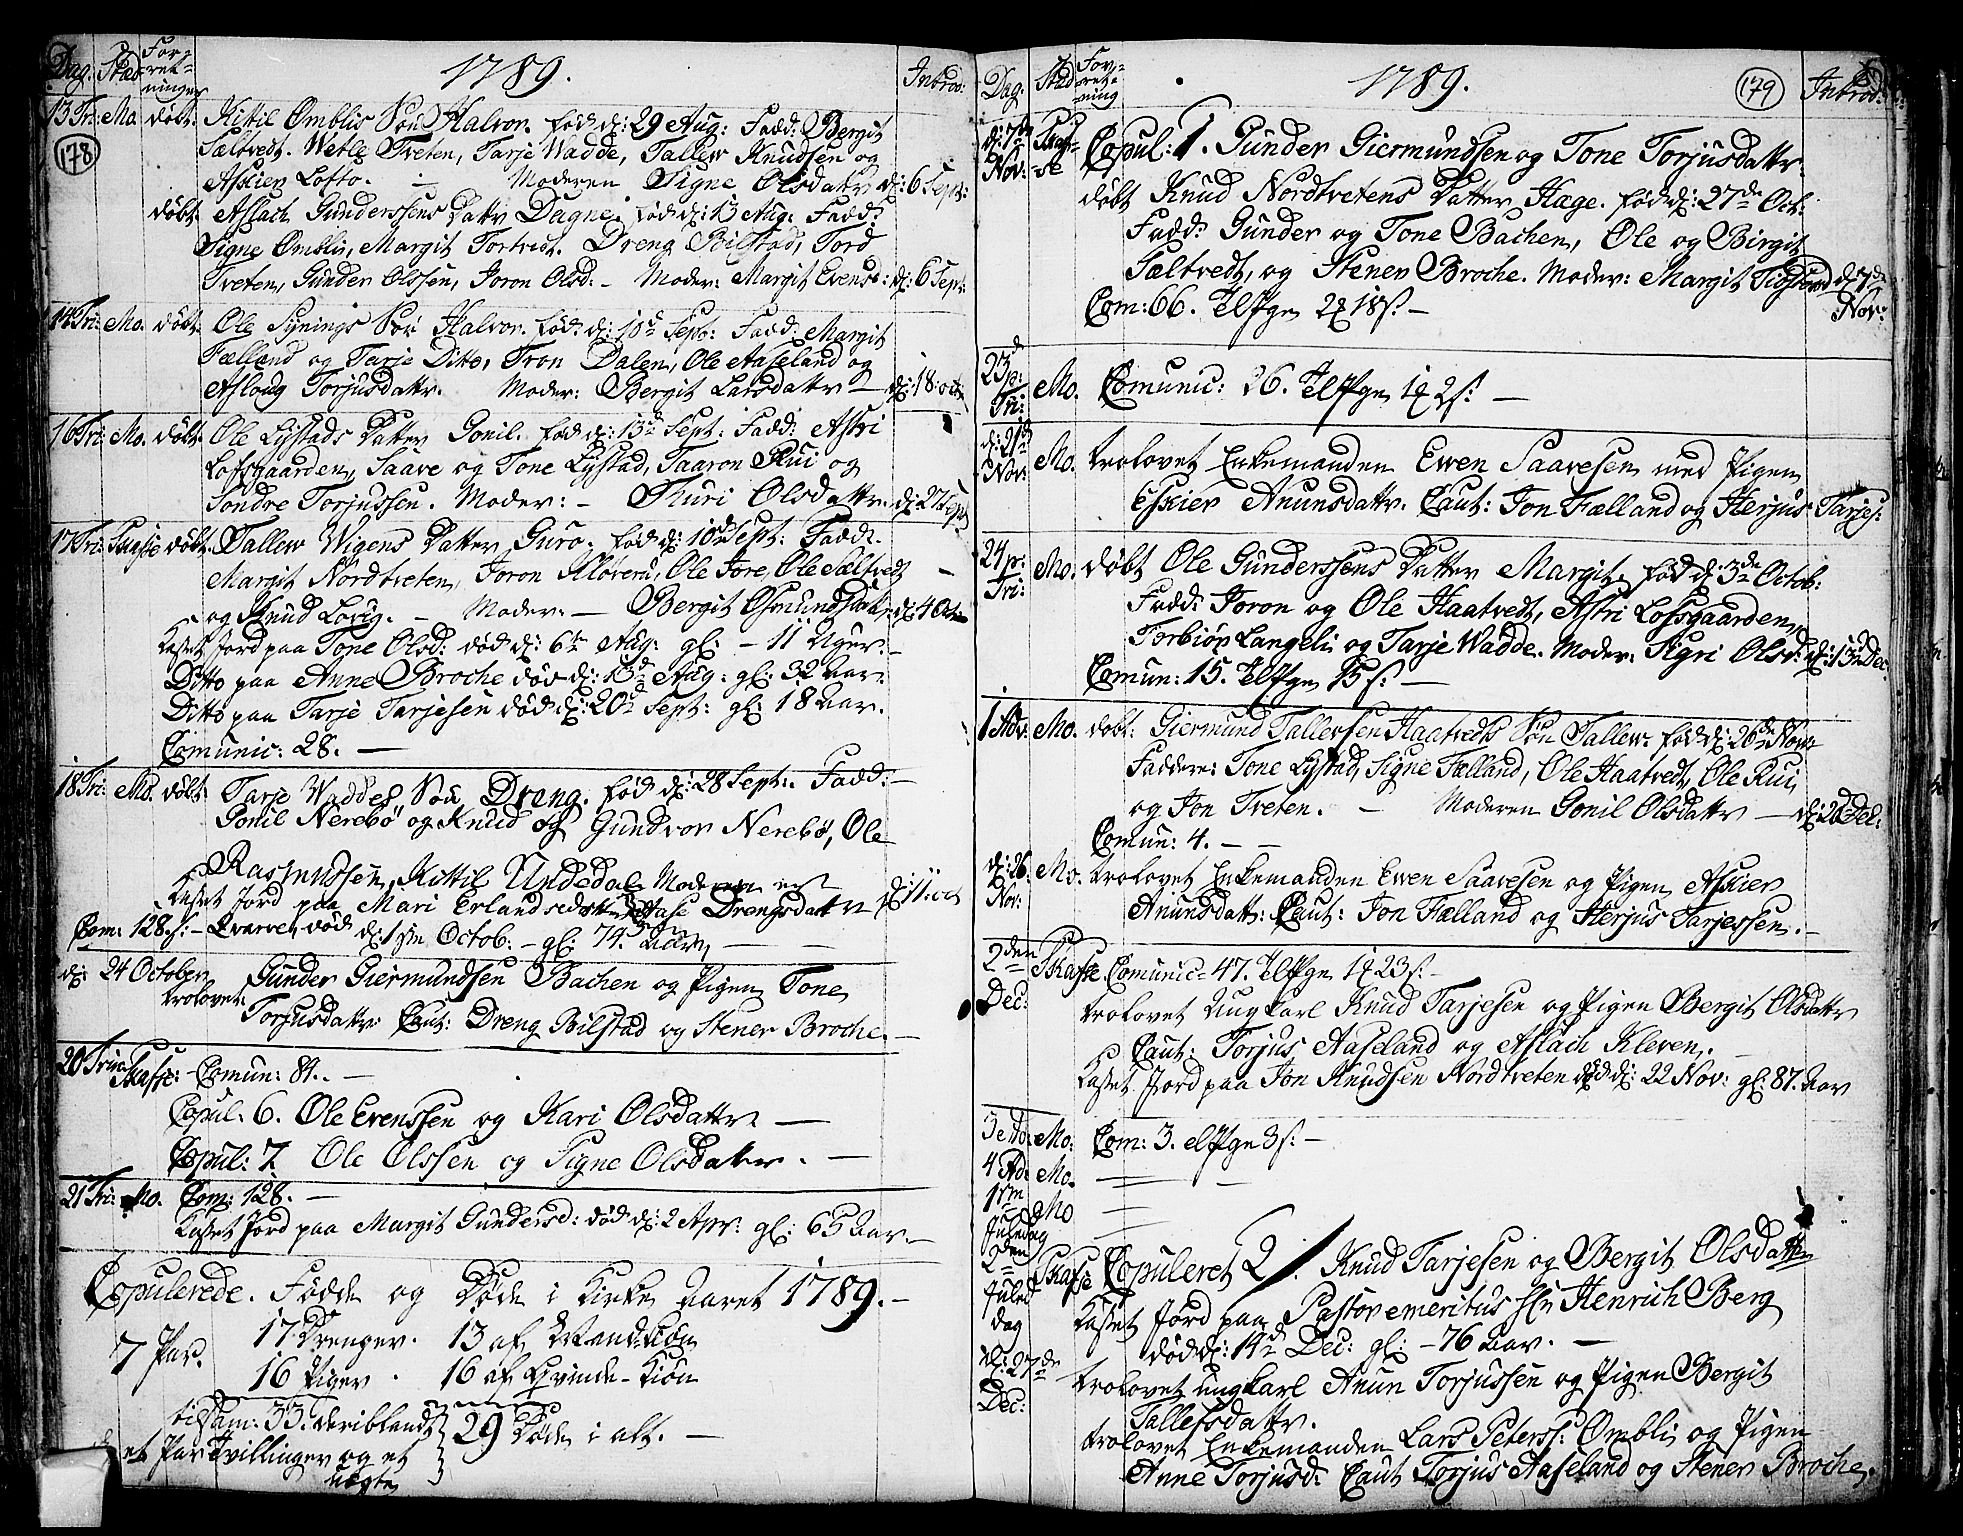 Dag. Stæd Forretninger 1789. Introd:
178
13 Tri: Mo. döbt. Kittil Ømblis Søn Halvor. föd d: 29 Aug: Fadd: Bergit
Sæltvedt. Wetle Treten, Tarje Wadde, Tallew Knudsen og
Aslier Lofto. Moderen Signe Olsdattr d: 6 Sept:
döbt. Aslach Gunderssens Datter Dagne. föd d: 13 Aug: Fadd:
Signe Ømbli, Margit Tortvedt. Dreng Bilstad, Tord
Treten, Gunder Olssen, Joron Olsd. – Moder: Margit Evens: d: 6 Sept:
14 Tri: Mo. döbt. Ole Synings Søn Halvor. föd d: 10d Sept: Fadd: Margit
Fælland og Tarje Ditto, Tron Dalen, Ole Aaseland og
Asloug Torjusdattr. Moder: Bergit Larsdattr – d: 18 oct
16 Tri: Mo. döbt. Ole Lystads Datter Gonil. föd d: 13d Sept: Fadd: Astri
Lofsgaarden, Saave og Tone Lystad, Taaron Rui og
Sondre Torjussen. Moder: – Thuri Olsdattr d: 27 Sept
17 Tri: Skafse döbt. Tallew Wigens Datter Guro. föd d: 10de Sept: Fadd:
Margit Nordtreten, Joron Kløveru, Ole Jore, Ole Sæltvedt
og Knud Lovig. – Moder: – Bergit Osmundsdatr d: 4 Oct
Kastet Jord paa Tone Olsd: död d: 6te Aug: gl: – 11 Uger.
Ditto paa Anne Broche död d: 13d Aug: gl: 32 Aar:
Ditto paa Tarje Tarjesen död d: 20d Sept: gl: 18 Aar.
Comunic: 28. –
18 Tri: Mo. döbt. Tarje Waddes Søn Dreng. föd d: 28 Sept: Fadd: –
Gonil Nerebö og Knud og Gundvor Nerebö, Ole
Rasmussen, Kittil Undedal Moderen er
Kastet Jord paa Mari Erlandsd Aase Drengsdatter d: 11 oct
Com: 128. – död d: 1ste Octob: – gl: 74 Aar,
d: 24 October Gunder Giermundsen Bachen og Pigen Tone
trolovet: Torjusdattr Caut: Dreng Bilstad og Stener Broche. –
20 Trin Skafse: – Comun: 84. –
Copul: 6. Ole Evenssen og Kari Olsdattr –
Copul: 7. Ole Olssen og Signe Olsdatter. –
21 Tri: Mo. Com: 128. –
Kastet Jord paa Margit Gundersd: död d: 2 Apr: gl: 65 Aar –
Copulerede. Födde og Döde i Kirke Aaret 1789. –
7 Par. 17 Drenger. 13 af Mand-Kiön
16 Piger. 16 af Qvinde-Kiön
tilsam: 33. deriblandt 29 Döde i alt. –
et Par Tvillinger og et
uægte
Dag. Stæd Forretning 1789. 179 Introd:
d: 7de Nov: Skafse Copul: 1. Gunder Giermundsen og Tone Torjusdattr.
döbt Knud Nordtretens Datter Hæge. föd d: 27de Oct:
Fadd: Gunder og Tone Bachen, Ole og Birgit
Sæltvedt, og Stener Broche. Moder: Margit d: 7de Nov:
Com: 66.
23d p: Tri: Mo. Comunic: 26.
d: 21d Nov: Mo. trolovet Enkemanden Ewen Saavesen med Pigen
Eslier Anunsdattr. Caut: Jon Fælland og Herjus Tarjes:
24 p: Tri: Mo. döbt Ole Gunderssens Datter Margit. föd d: 3de Octob:
Fadd: Joron og Ole Haatvedt, Astri Lofsgaarden,
Torbiör Langeli og Tarje Wadde. Moder: Sigri Olsd: d: 13 Dec.
Comun: 15.
1 Adv: Mo. döbt: Giermund Tallevsen Haatvedts Søn Tallew. föd d: 26de Nov:
Faddere: Tone Lystad, Signe Fælland, Ole Haatvedt, Ole Rui,
og Jon Treten. – Moderen Gonil Olsdattr – d: 26 Dec:
Comun: 4. –
d: 26. Nov: Mo. trolovet Enkemanden Ewen Saavesen og Pigen Aslier
Anunsdattr: Caut: Jon Fælland og Herjus Tarjessen. –
2den Dec: Skafse Comunic 47.
trolovet Ungkarl Knud Tarjesen og Pigen Bergit Olsdattr
Caut: Torjus Aaseland og Aslach Kleven.
Kastet Jord paa Jon Knudsen Nordtreten död d: 22 Nov: gl: 87. Aar
3 Mo: Com: 3.
4 Ad: Mo. –
1ste Juledag Mo –
2den Juledag Skafse Copuleret 2. Knud Tarjesen og Bergit Olsdatter
Kastet Jord paa Pastor emeritus Hr Henrich Berg
död d: 14d Dec: gl: – 76 Aar. –
d: 27de Dec: trolovet ungkarl Anun Torjussen og Pigen Bergit
Tallefsdattr.
trolovet Enkemanden Lars Peterss: Ømbli og Pigen
Anne Torjusd: Caut Torjus Aaseland og Stener Broche.